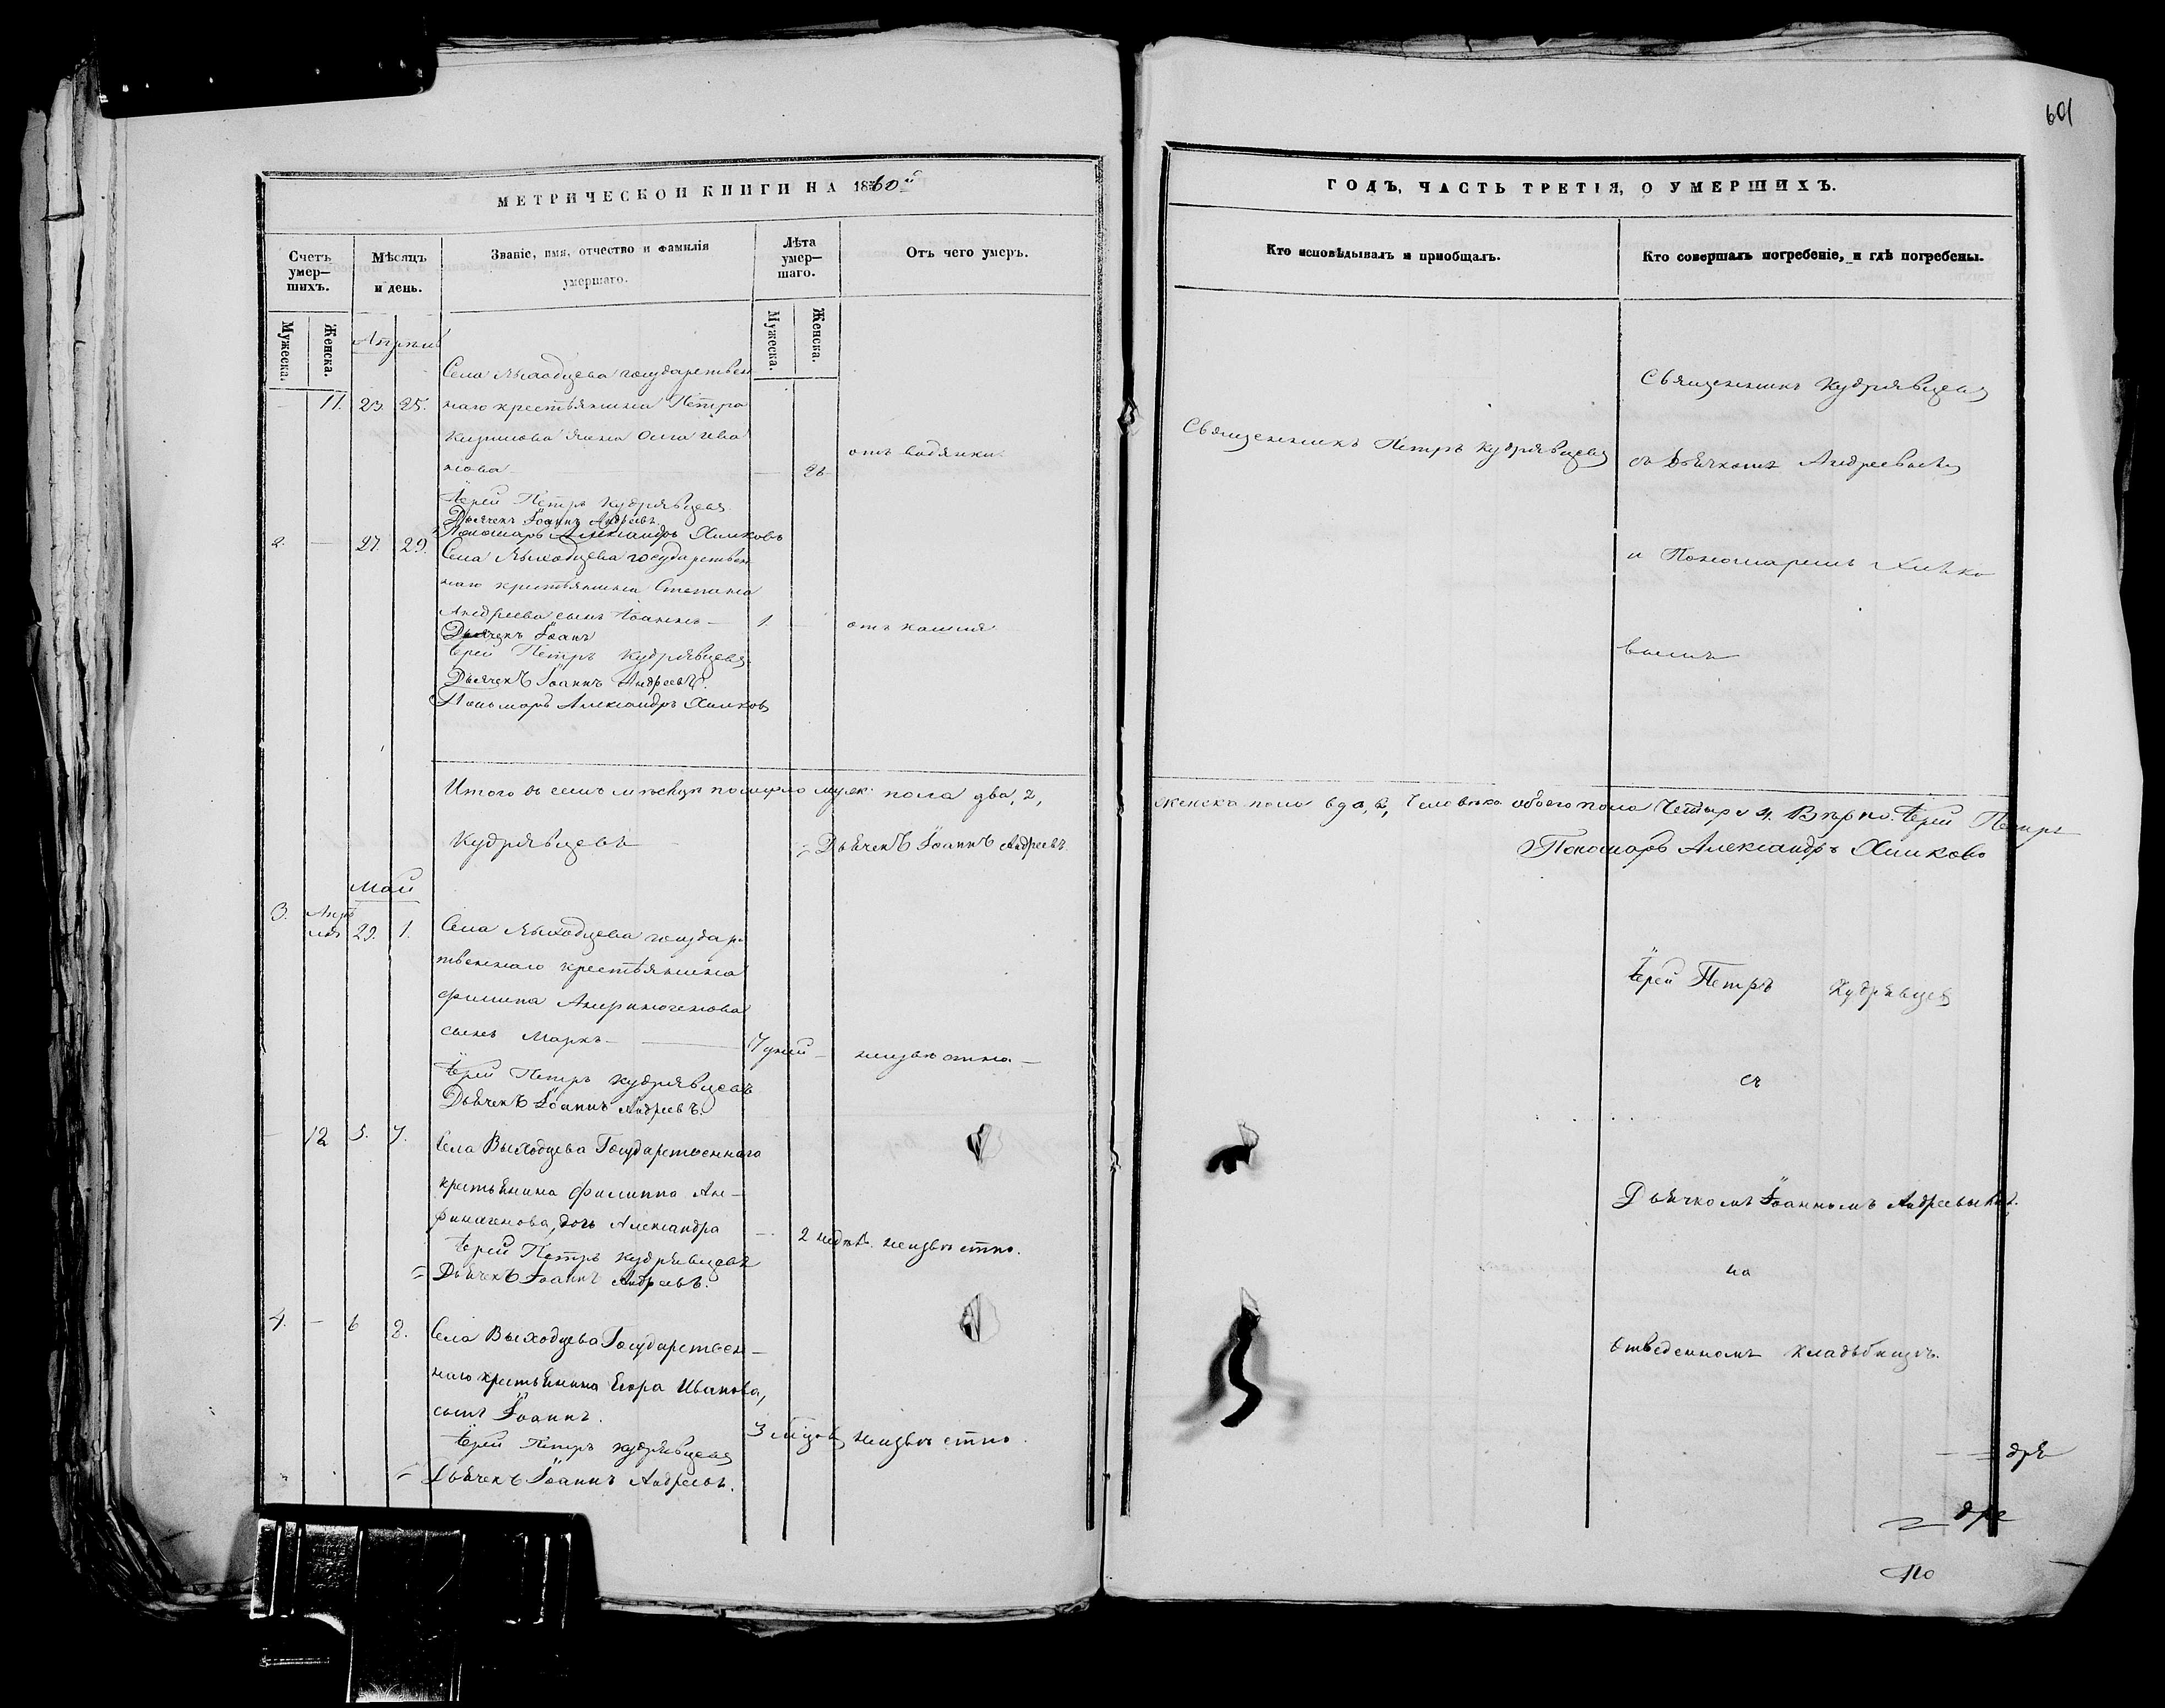 601
МЕТРИЧЕСКОЙ КНИГИ НА 1860й
Счетъ умер-
шихъ.
Мѣсяцъ
и день.
Званіе, имя, отчество и фамилія
умершаго.
Лѣта
умер-
шаго.
Отъ чего умеръ.
Мужеска.
Женска.
Мужеска.
Женска.
Апрѣль
Села Выходцева государствен
11. 23. 25. наго крестьянина Петра
жена Ива
нова 26 отъ водянки
Іерей Петръ Кудрявцевъ
Дьячекъ Іоаннъ Андреевъ
Пономарь Александръ Хилковъ
2. — 27. 29. Села Выходцева государствен
наго крестьянина Степана
Андреева сынъ Іоаннъ — 1. отъ кашля
Дьячекъ Іоан
Іерей Петръ Кудрявцевъ
Дьячекъ Іоаннъ Андреевъ.
Пономарь Александръ Хилковъ
Итого въ семъ мѣсяцѣ померло муж. пола два, 2,
Кудрявцевъ Дьячекъ Іоаннъ Андреевъ
Май
3. Апрѣ
ля 29. 1. Села Выходцева государ
твеннаго крестьянина
Филипа
сынъ Маркъ — 7 дней — неизвѣстно —
Іерей Петръ Кудрявцевъ
Дьячекъ Іоаннъ Андреевъ.
— 12 5. 7. Села Выходцева Государственнаго
крестьянина Филиппа Ан-
финогенова, дочь Александра — 2 недѣл. неизвѣстно.
Іерей Петръ Кудрявцевъ
Дьячекъ Іоаннъ Андреевъ.
4. — 6 8. Села Выходцева Государствен-
наго крестьянина Егора Иванова,
сынъ Іоаннъ. 3 неизвѣстно.
Іерей Петръ Кудрявцевъ
Дьячекъ Іоаннъ Андреевъ.
ГОДЪ, ЧАСТЬ ТРЕТІЯ, О УМЕРШИХЪ.
Кто исповѣдывалъ и пріобщалъ.
Кто совершалъ погребеніе, и гдѣ погребены.
Священникъ Кудрявцевъ
Священникъ Петръ Кудрявцевъ
съ Дьячкомъ Андреевымъ
и Пономаремъ Хилко
вымъ
женска пола два, 2, человѣка обоего пола четыре 4. Вѣрно. Іерей Петръ
Пономарь Александръ Хилковъ
Іерей Петръ Кудрявцевъ
съ
Дьячкомъ Іоанномъ Андреевымъ.
на
отведенномъ кладбищѣ.
по